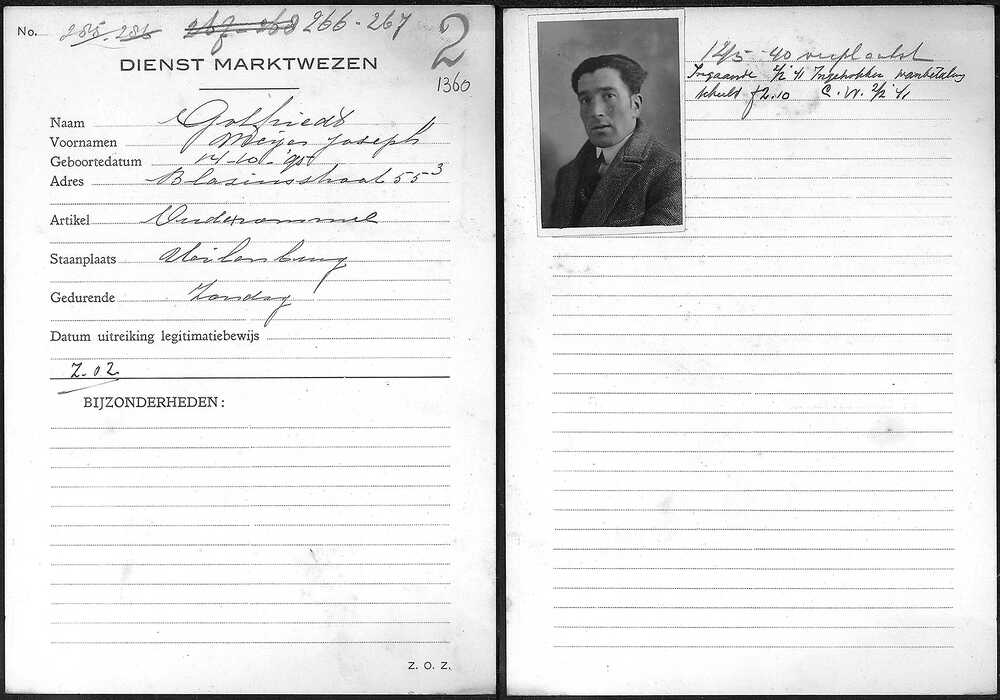 No. 285-286 267-268 266-267
2
1360
DIENST MARKTWEZEN
Naam Gotfriedt
Voornamen Meijer Joseph
Geboortedatum 14-10-'901
Adres Blasiusstraat 55³
Artikel Oude rommel
Staanplaats Uilenburg
Gedurende Zondag
Datum uitreiking legitimatiebewijs
Z.02
BIJZONDERHEDEN:
Z. O. Z.
12/5 -40 verplaatst
Ingaande 2/2 '41 Ingetrokken wanbetaling
schuld f 2.10 C.W. 2/2 '41